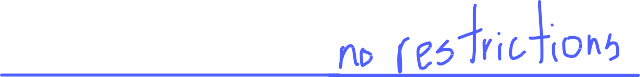 no restrictions